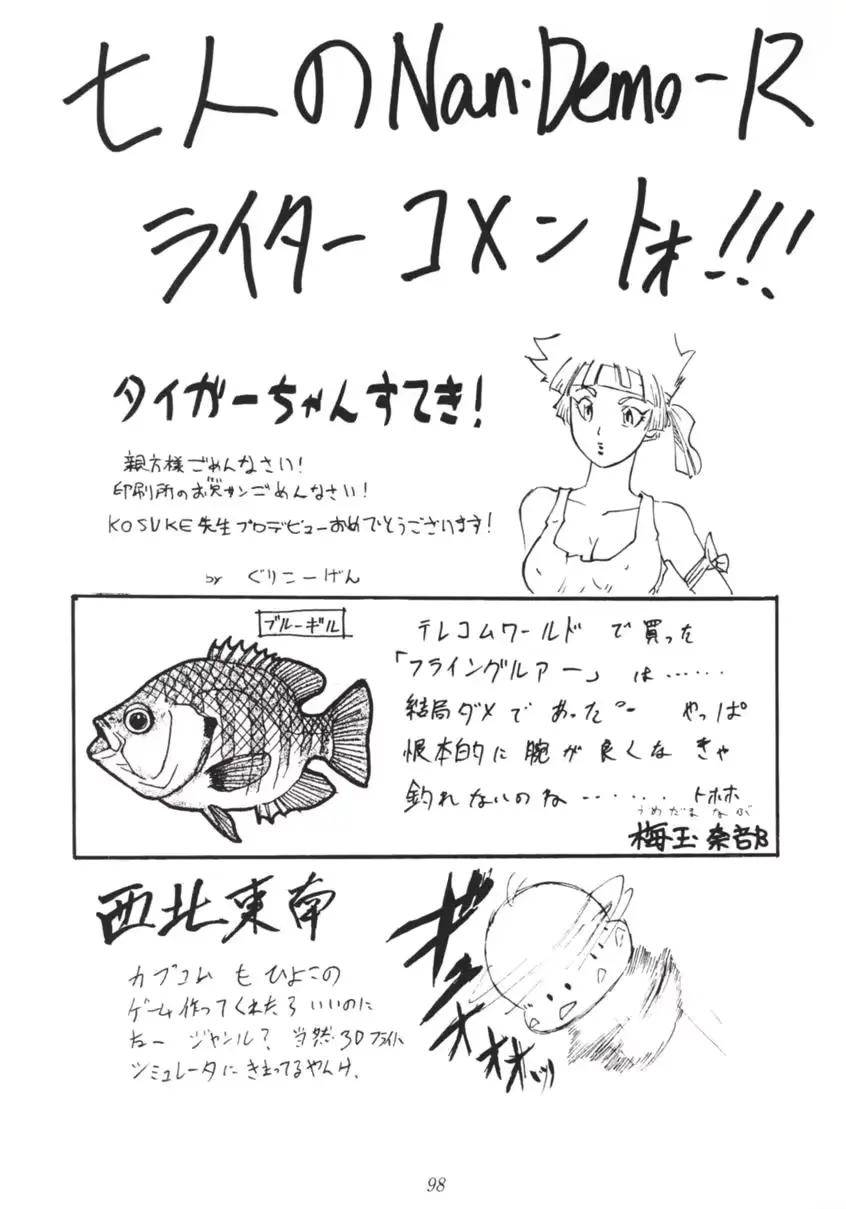 七人のNan・Demo-R
ライターコメントォ!!!
タイガーちゃんすてき!
親方様ごめんなさい!
印刷所のお兄サンごめんなさい!
KOSUKE先生プロデビューおめでとうございます!
by ぐりこーげん
ブルーギル
テレコムワールドで買った
「フライングルアー」は……
結局ダメであった°- やっぱ
根本的に腕が良くなきゃ
釣れないのね……. トホホ
うめだまなぶ
梅玉奈部
西北東南
カプコムもひよこの
ゲーム作ってくれたらいいのに
なー ジャンル? 当然・3Dフライト
シミュレータにきまってるやんけ、
ギュオオオォッ
98